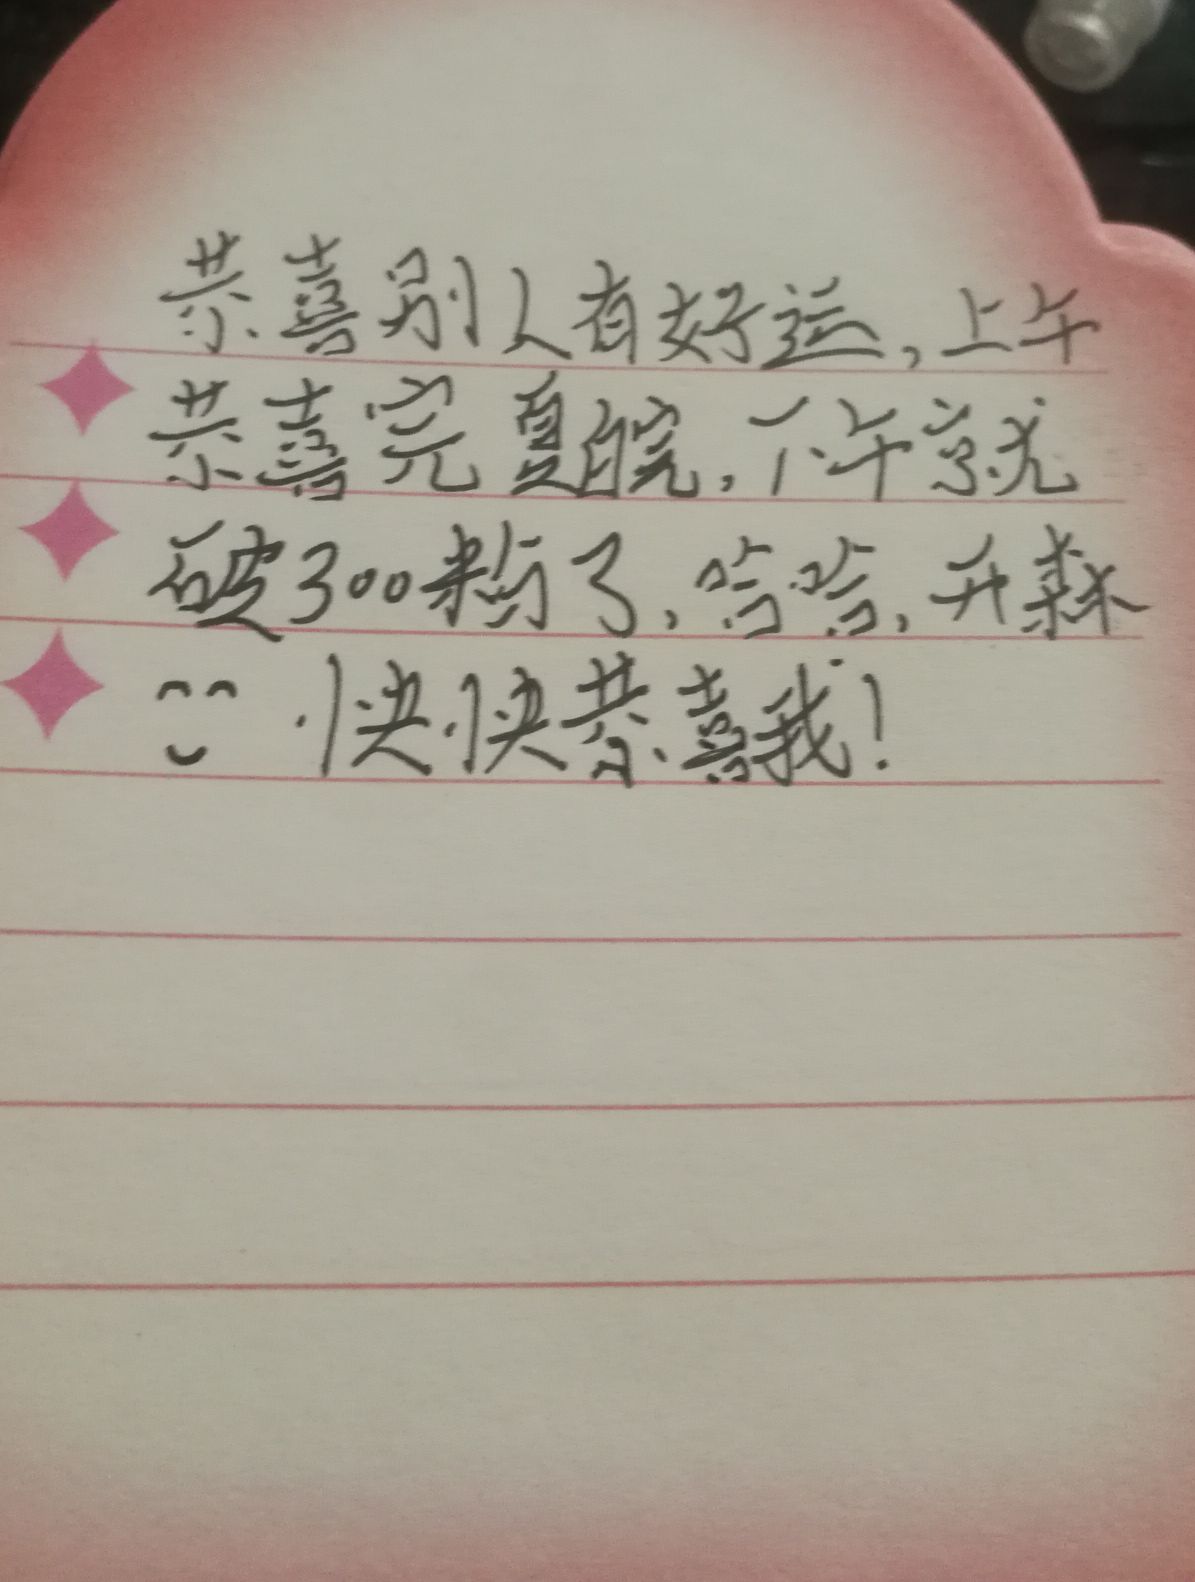 恭喜别人有好运，上午
恭喜完夏皖，下午就
破300粉了，哈哈，开森
快快恭喜我！